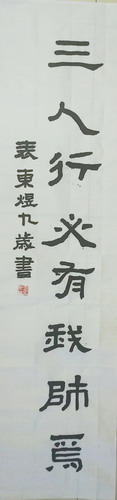 三人行必有我師焉
袁東煜九歲書